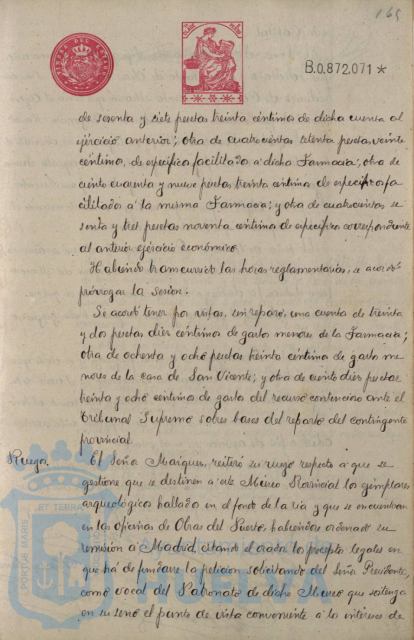 165
B.0.872.071*
de sesenta y siete pesetas treinta céntimos de dicha cuenta al
ejercicio anterior; otra de cuatrocientas setenta pesetas veinte
céntimos, de específicos facilitados a dicha Farmacia; otra de
ciento cuarenta y nueve pesetas treinta céntimos de específicos fa
cilitados a la misma Farmacia; y otra de cuatrocientas se
senta y tres pesetas noventa céntimos de específicos correspondiente
al anterior ejercicio económico.
Habiendo transcurrido las horas reglamentarias, se acordó
prorrogar la sesión.
Se acordó tener por vistas, sin reparo, una cuenta de treinta
y dos pesetas diez céntimos de gastos menores de la Farmacia;
otra de ochenta y ocho pesetas treinta céntimos de gastos me
nores de la casa de San Vicente; y otra de ciento diez pesetas
treinta y ocho céntimos de gastos del recurso contencioso ante el
Tribunal Supremo sobre bases del reparto del contingente
provincial.
Ruego.
El Señor Marques, reiteró su ruego respecto a que se
gestione que se destinen a este Museo Provincial los ejemplares
arqueológicos hallados en el fondo de la ría y que se encuentran
en las oficinas de Obras del Puerto habiéndose ordenado su
remisión a Madrid, citando el orador los preceptos legales en
que ha de fundarse la petición solicitando del Señor Presidente,
como vocal del Patronato de dicho Museo que sostenga
en su seno el punto de vista conveniente a los intereses de
PORTUS MARIS ET TERRAE
HUELVA